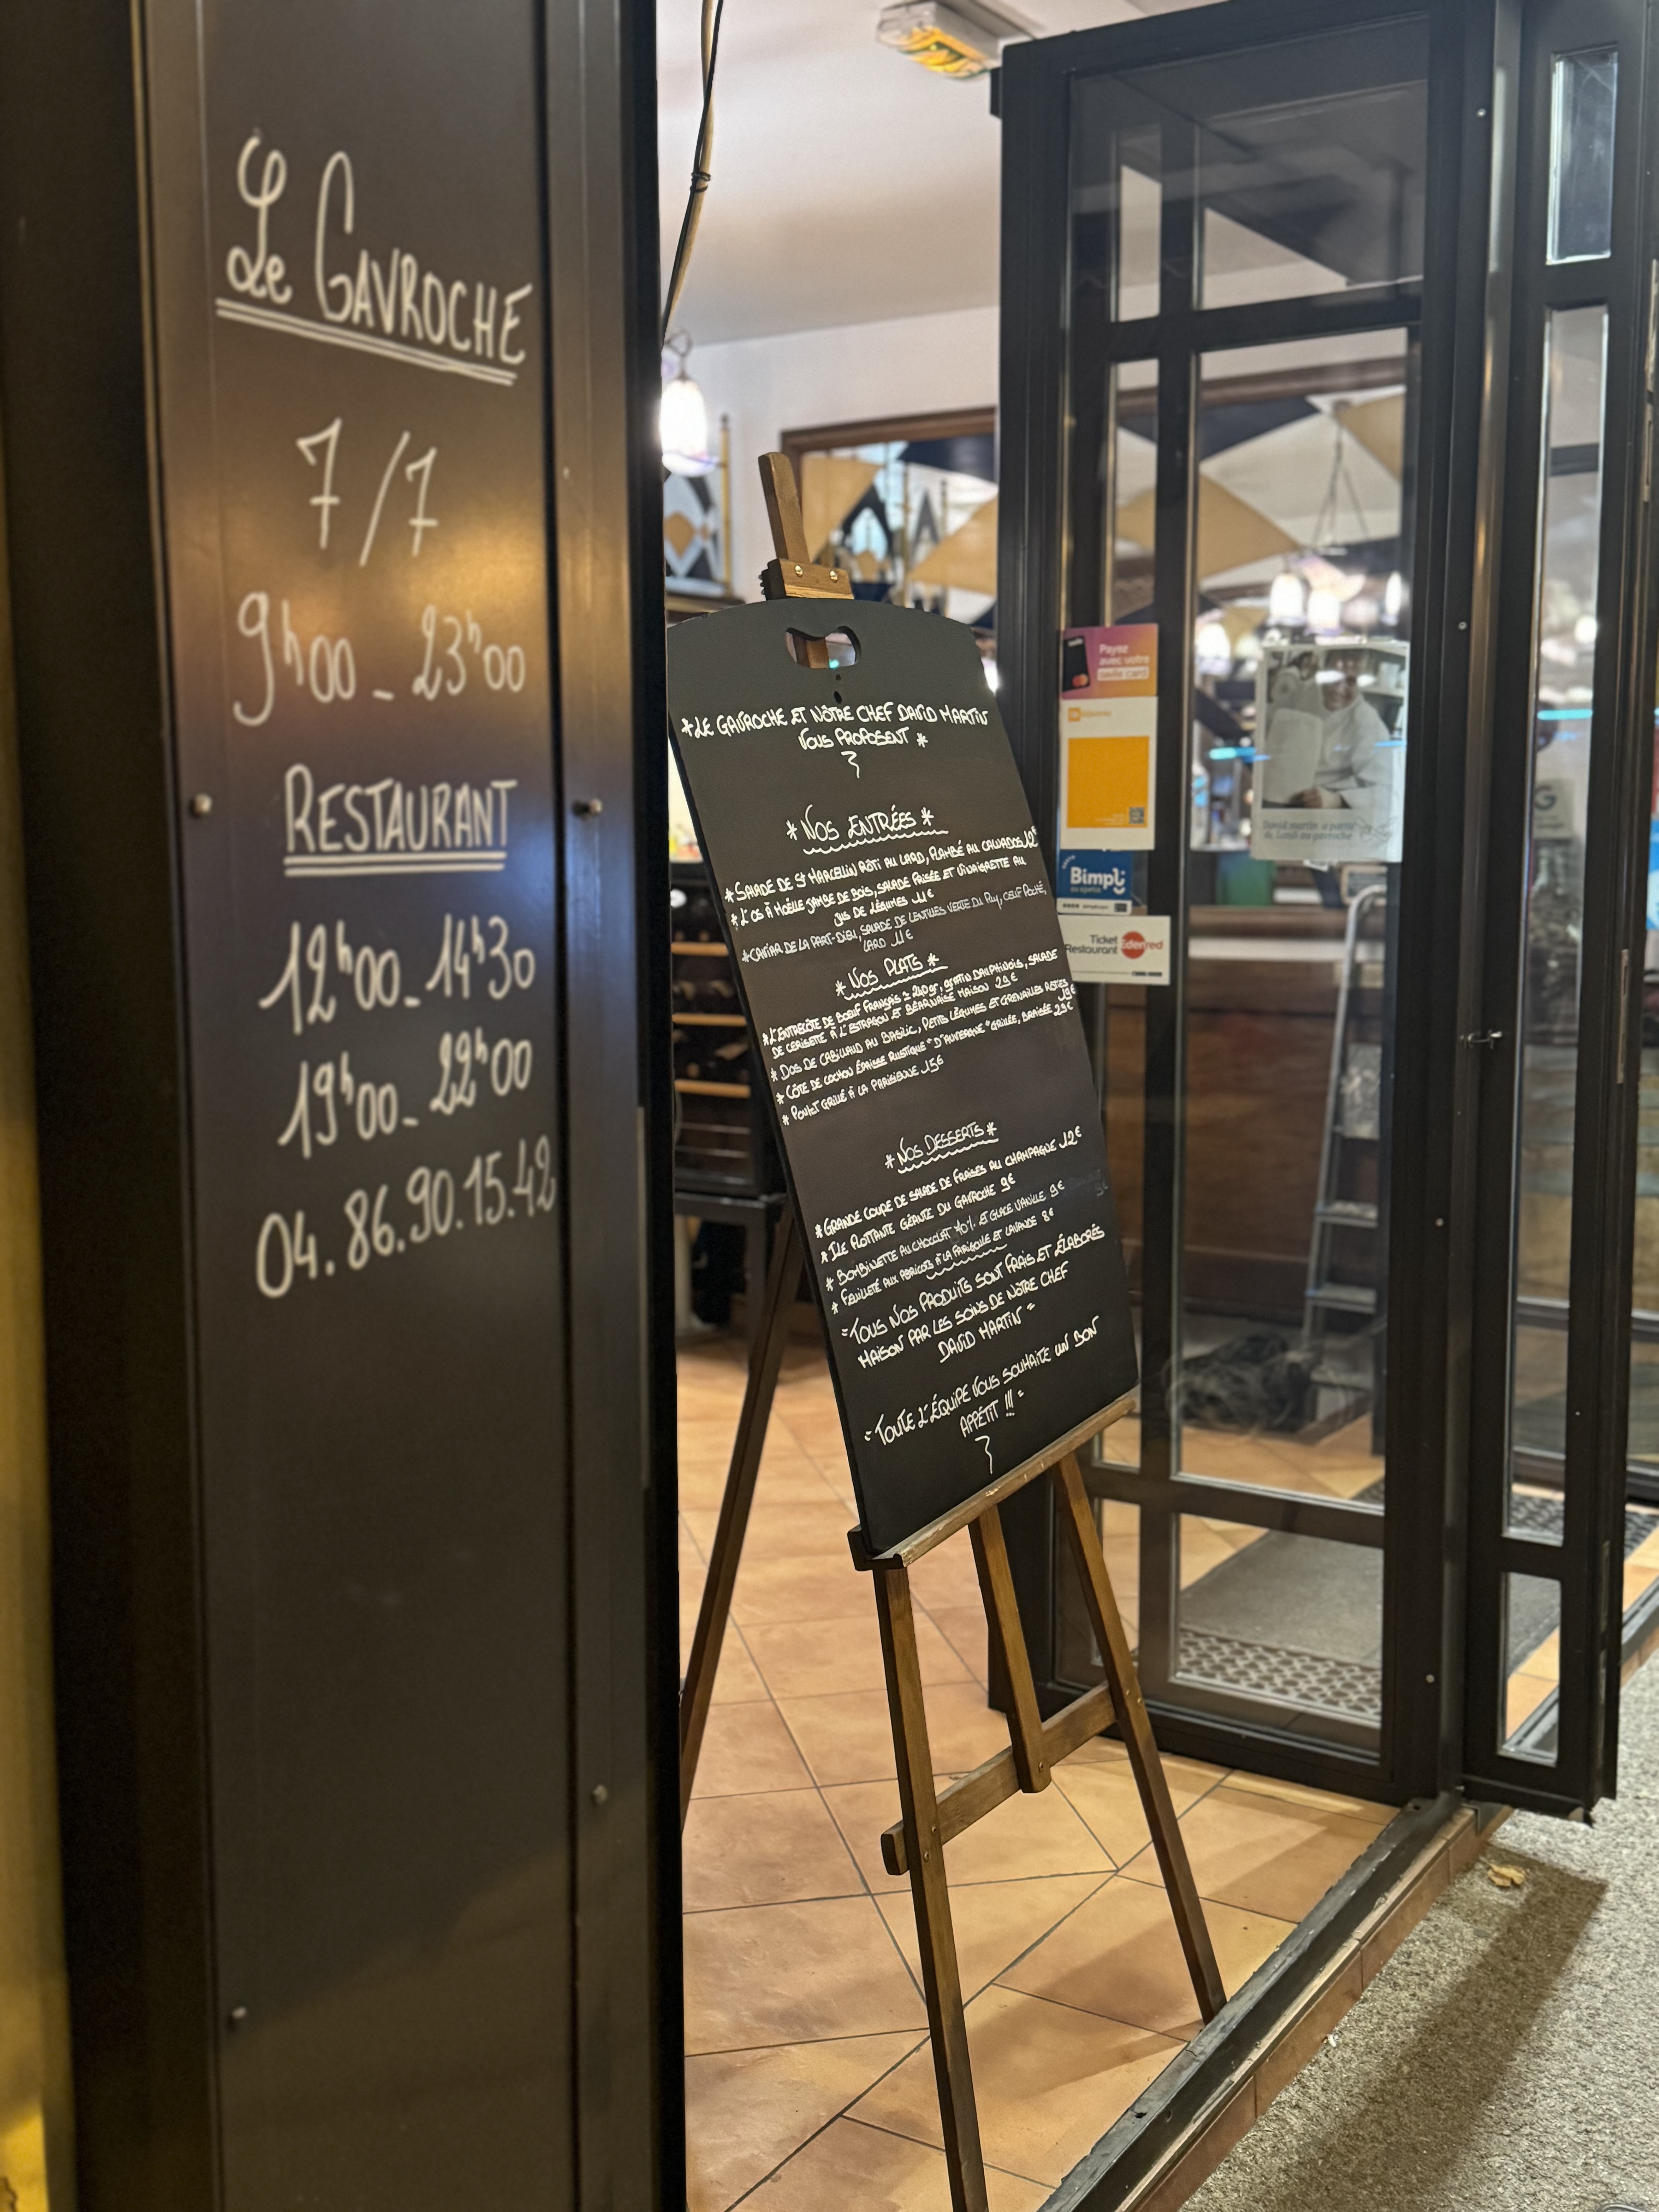 Le GAVROCHE
7/7
9h00 - 23h00
RESTAURANT
12h00 - 14h30
19h00 - 22h00
04.86.90.15.42
*LE GAVROCHE ET NÔTRE CHEF DAVID MARTIN
VOUS PROPOSENT *
* NOS ENTRÉES *
* SALADE DE St MARCELLIN RÔTI AU LARD, FLAMBÉ AU CALVADOS 12€
* L'OS À MOËLLE JAMBE DE BOIS, SALADE FRISÉE ET VINAIGRETTE AU
JUS DE LÉGUMES 11€
* CAVIAR DE LA PART-DIEU, SALADE DE LENTILLES VERTE DU Puy, OEUF POCHÉ,
LARD 11€
* NOS PLATS *
* L'ENTRECÔTE DE BOEUF FRANÇAIS ± 240gr, GRATIN DAUPHINOIS, SALADE
DE CERISETTE À L'ESTRAGON ET BÉARNAISE MAISON 29€
* DOS DE CABILLAUD AU BASILIC, PETITS LÉGUMES ET GRENAILLES RÔTIES 19€
* CÔTE DE COCHON ÉPAISSE RUSTIQUE "D'AUVERGNE" GRILLÉE, BRAISÉE 23€
* POULET GRILLÉ À LA PARISIENNE 15€
* NOS DESSERTS *
* GRANDE COUPE DE SALADE DE FRAISES AU CHAMPAGNE 12€
* ILE FLOTTANTE GÉANTE DU GAVROCHE 9€
* BOMBINETTE AU CHOCOLAT 70% ET GLACE VANILLE 9€
* FEUILLETÉ AUX ABRICOTS À LA FARIGOULE ET LAVANDE 8€
"TOUS NOS PRODUITS SONT FRAIS ET ÉLABORÉS
MAISON PAR LES SOINS DE NÔTRE CHEF
DAVID MARTIN"
"TOUTE L'ÉQUIPE VOUS SOUHAITE UN BON
APPÉTIT !!!"
Payez
avec votre
Bimpli
Ticket
Restaurant Edenred
David martin a partir
de Lundi au gavroche
G